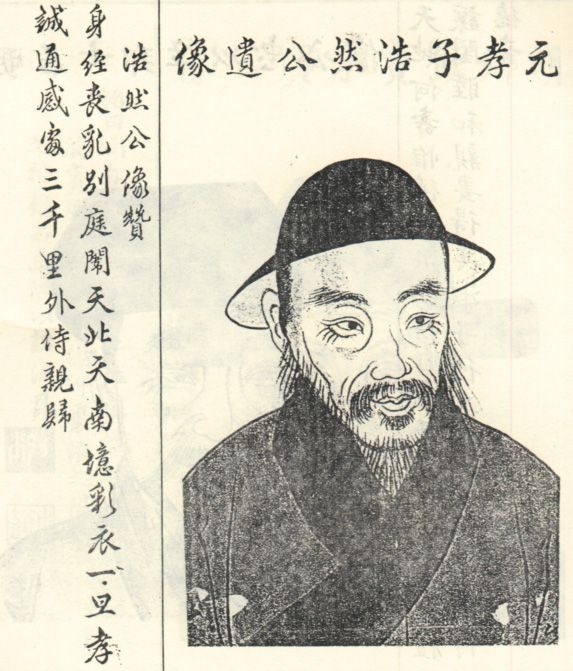 元孝子浩然公遺像
浩然公像贊
身経喪乱別庭闈天北天南憶彩衣一旦孝
誠通感處三千里外侍親歸